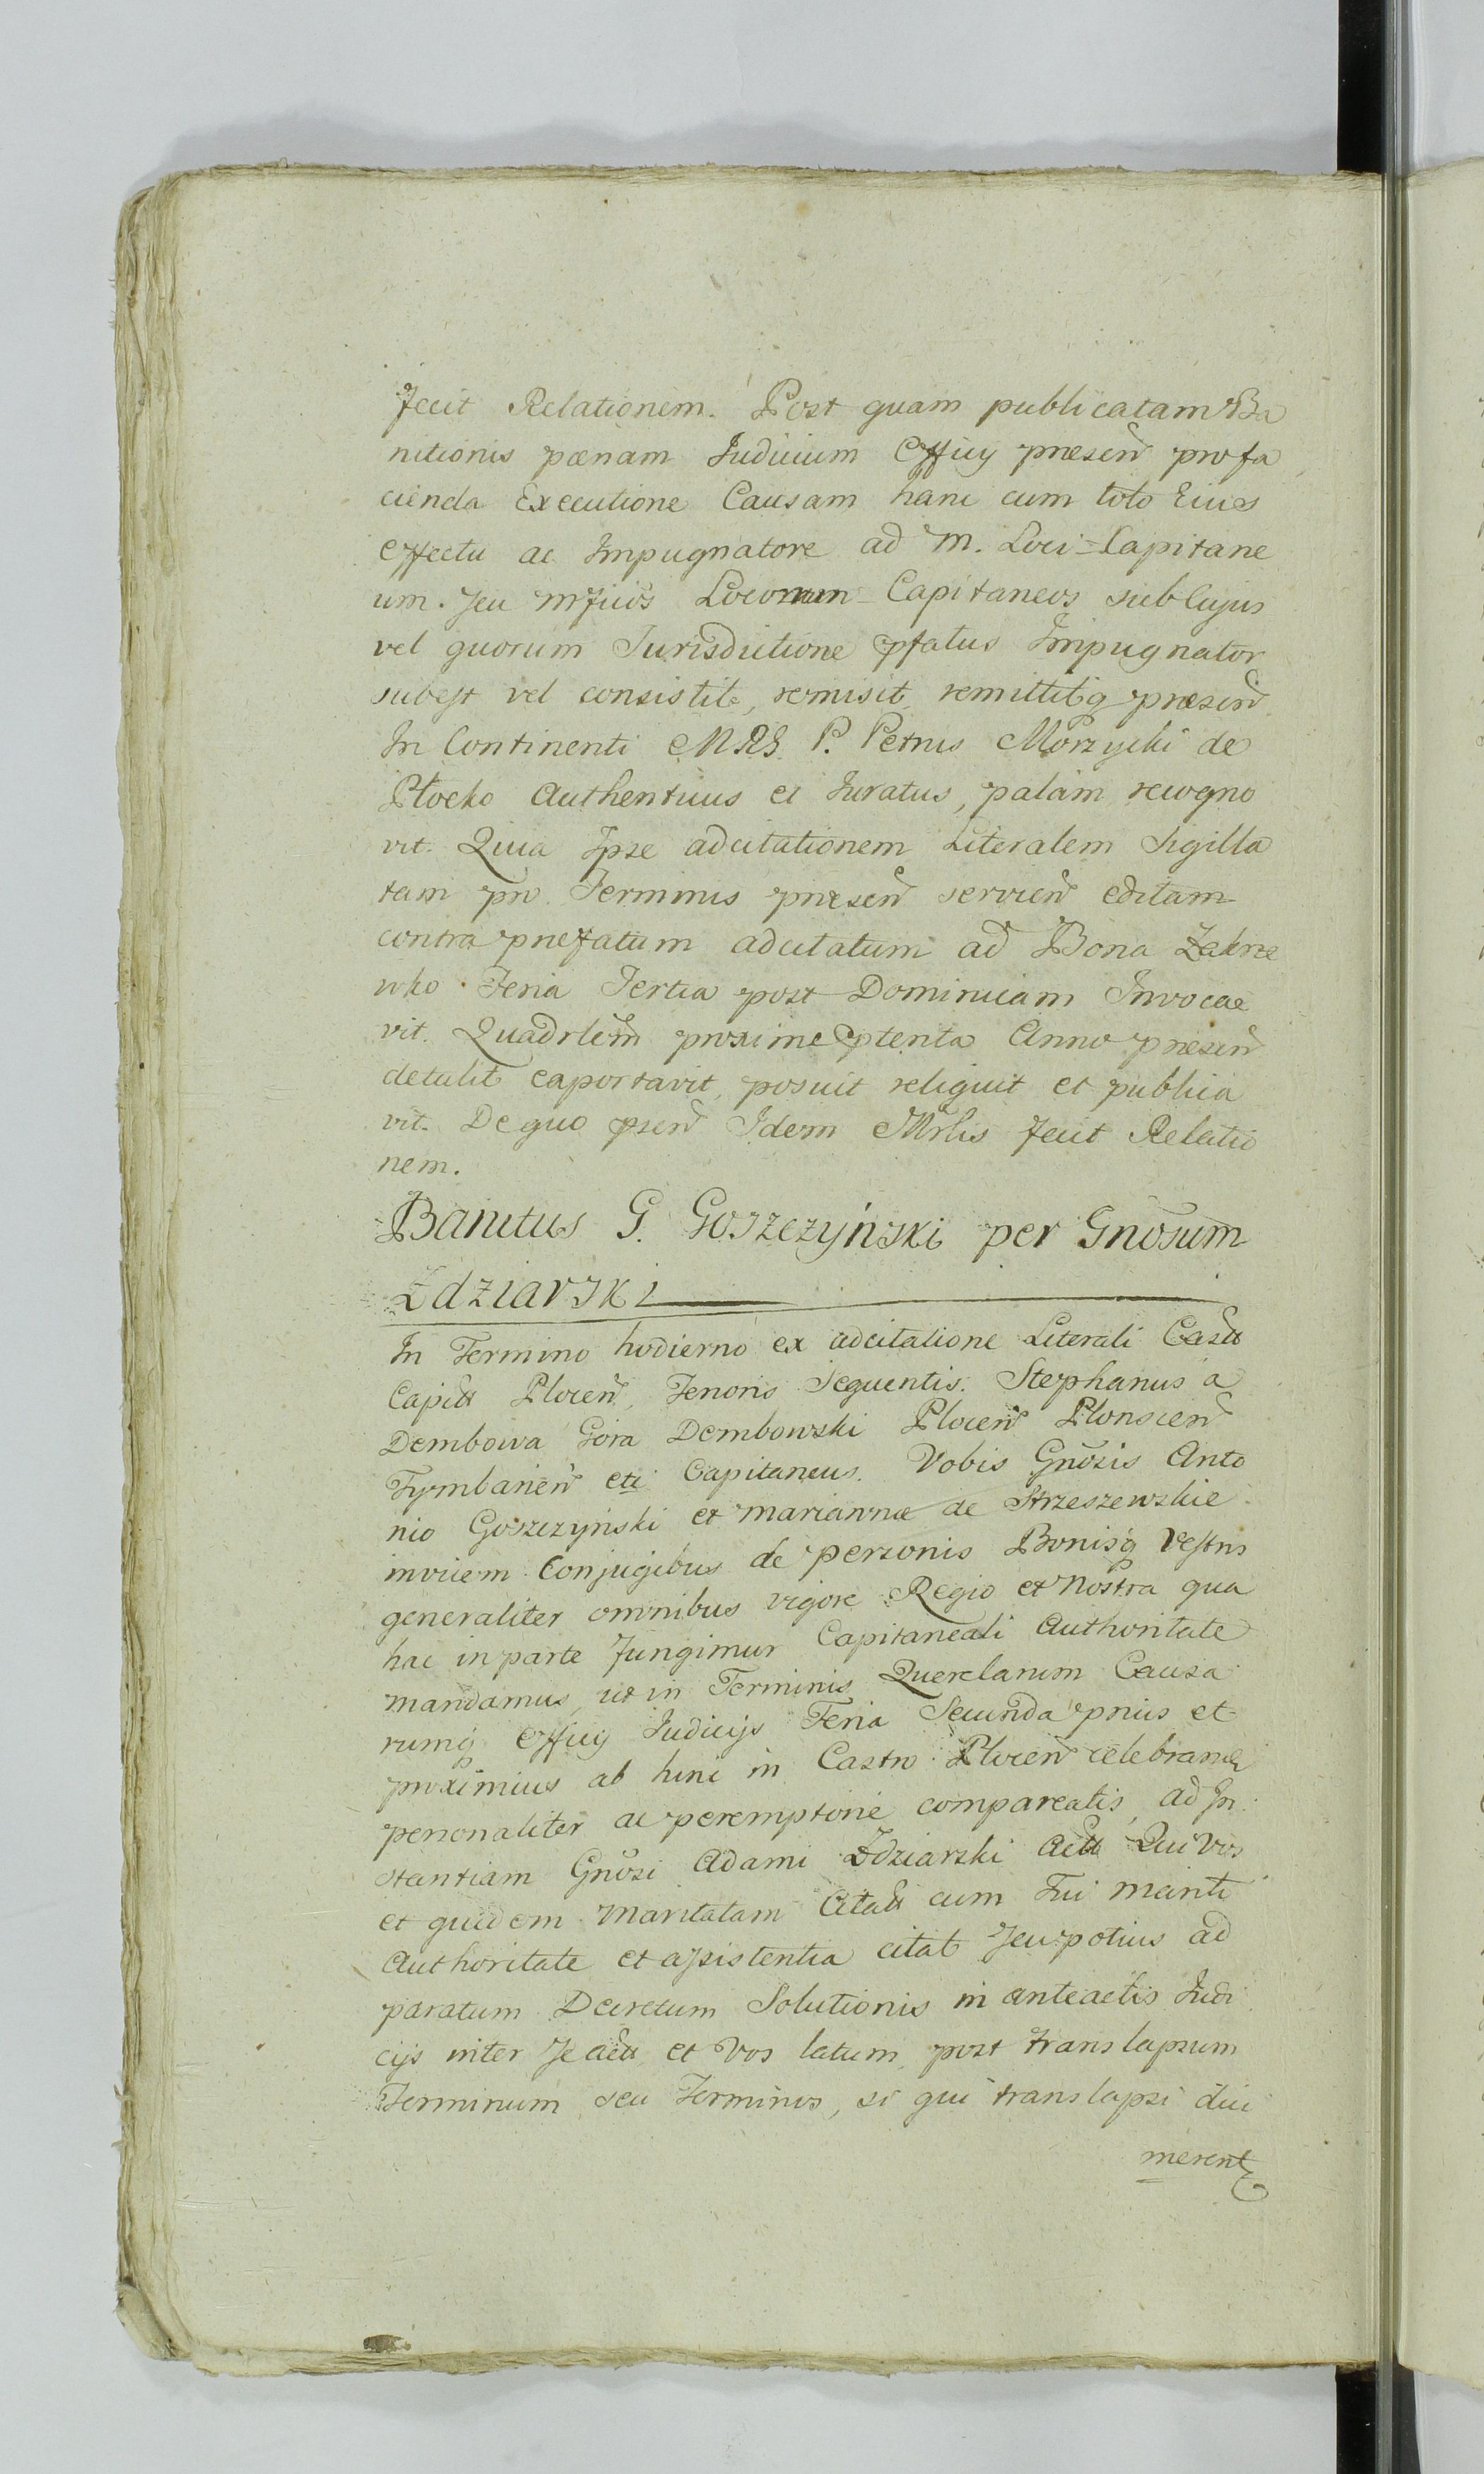 fecit Relationem. Post quam publicatam Ba
nitionis pænam Judicium Officij præsen̄ pro fa
cienda Executione Causam hanc cum toto Eius
effectu ac Impugnatore ad M. Loci-Capitane
um. seu mficos Locorum-Capitaneos sub Cujus
vel quorum Jurisdictione pfatus Impugnator
subest vel consistit, remisit, remittitq præsen̄
In Continenti MRS. P. Petrus Morzycki de
Płocko Authenticus et Juratus, palam recogno
vit. Quia Ipse adcitationem Literalem Sigilla
tam pro Terminis præsen̄ servien̄ editam
contra præfatum adcitatum ad Bona Zakrze
wko Feria Tertia post Dominicam Invocae
vit. Quadrlem̄ proxime ptenta Anno præsen̄
detulit eaportavit, posuit reliquit et publica
vit. De quo psen̄ Idem Mrlis fecit Relatio
nem.
Banitus G. Goszczyński per Gnosum
Zdziarski
In Termino hodierno ex adcitatione Literali Castr
Capitt Plocen̄, Tenoris Sequentis. Stephanus a
Dembowa Gora Dembowski Plocen̄ Plonscen̄
Tymbarien̄ etc Capitaneus. Vobis Gnosis Anto
nio Goszczyński et Mariannæ de Strzeszewskie
invicem Conjugibus de personis Bonisq̨ vestris
generaliter omnibus vigore Regio et Nostra qua
hac in parte fungimur Capitaneali Authoritate
mandamus, ut in Terminis Querelarum Causa
rumq̨ Officij Judicijs Feria Secunda prius et
proximius ab hinc in Castro Plocen̄ celebrand
personaliter ac peremptorie compareatis, ad In
stantiam Gnosi Adami Zdziarski Actt Qui Vos
et quidem Maritatam Citatt cum Tui Mariti
Authoritate et assistentia citat seu potius ad
paratum Decretum Solutionis in anteactis Judi
cijs inter se Actt et Vos latum, post translapsum
Terminum seu Terminos, si qui translapsi dici
merent